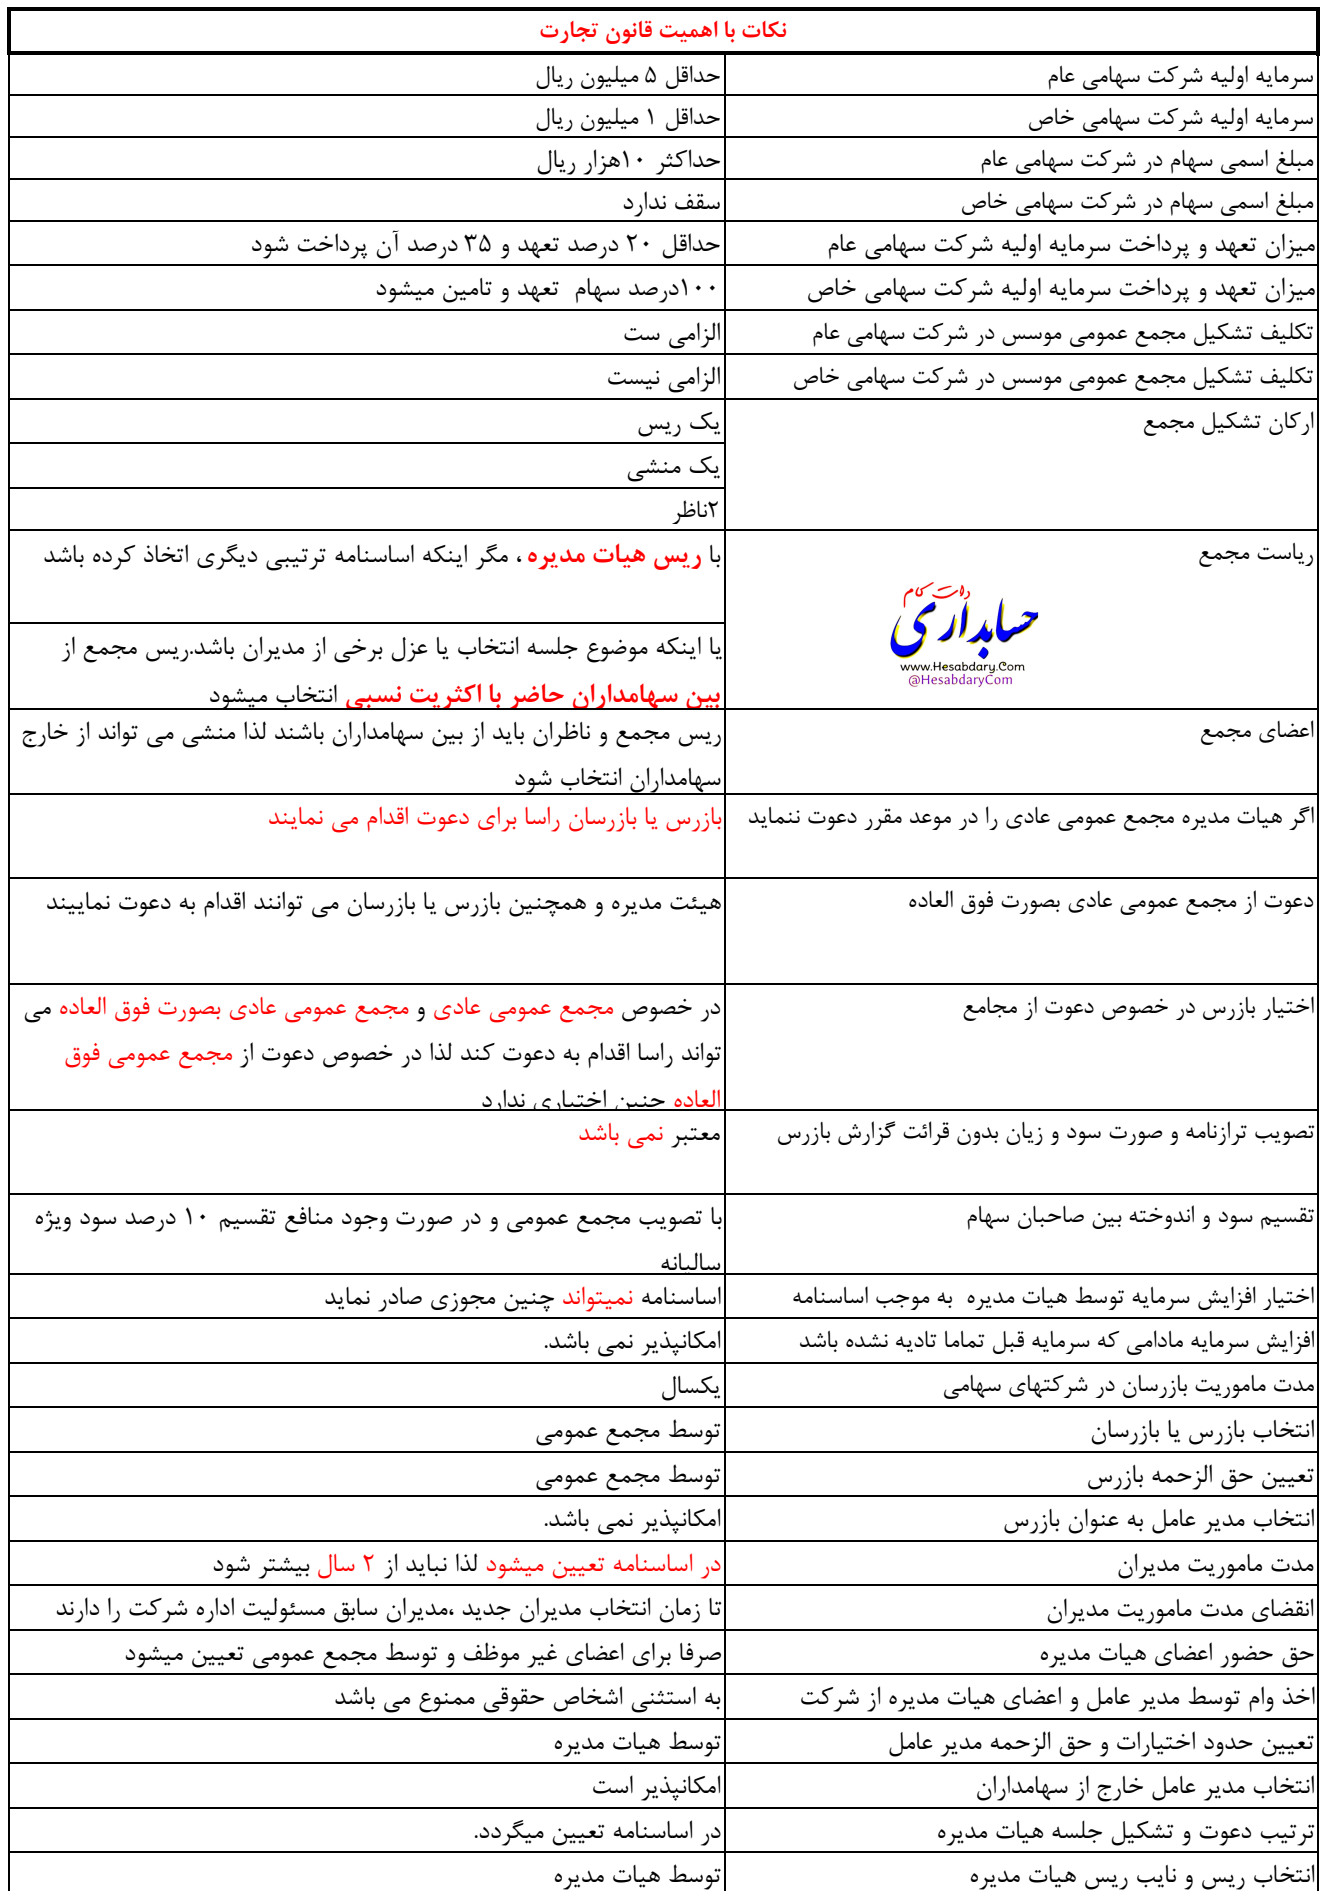 نکات با اهمیت قانون تجارت
سرمایه اولیه شرکت سهامی عام
حداقل ۵ میلیون ریال
سرمایه اولیه شرکت سهامی خاص
حداقل ۱ میلیون ریال
مبلغ اسمی سهام در شرکت سهامی عام
حداکثر ۱۰هزار ریال
مبلغ اسمی سهام در شرکت سهامی خاص
سقف ندارد
میزان تعهد و پرداخت سرمایه اولیه شرکت سهامی عام
حداقل ۲۰ درصد تعهد و ۳۵ درصد آن پرداخت شود
میزان تعهد و پرداخت سرمایه اولیه شرکت سهامی خاص
۱۰۰درصد سهام تعهد و تامین میشود
تکلیف تشکیل مجمع عمومی موسس در شرکت سهامی عام
الزامی ست
تکلیف تشکیل مجمع عمومی موسس در شرکت سهامی خاص
الزامی نیست
ارکان تشکیل مجمع
یک ریس
یک منشی
۲ناظر
ریاست مجمع
با ریس هیات مدیره ، مگر اینکه اساسنامه ترتیبی دیگری اتخاذ کرده باشد
حسابداری
دات کام
www.Hesabdary.Com
@HesabdaryCom
یا اینکه موضوع جلسه انتخاب یا عزل برخی از مدیران باشد.ریس مجمع از
بین سهامداران حاضر با اکثریت نسبی انتخاب میشود
اعضای مجمع
ریس مجمع و ناظران باید از بین سهامداران باشند لذا منشی می تواند از خارج
سهامداران انتخاب شود
اگر هیات مدیره مجمع عمومی عادی را در موعد مقرر دعوت ننماید
بازرس یا بازرسان راسا برای دعوت اقدام می نمایند
دعوت از مجمع عمومی عادی بصورت فوق العاده
هیئت مدیره و همچنین بازرس یا بازرسان می توانند اقدام به دعوت نماییند
اختیار بازرس در خصوص دعوت از مجامع
در خصوص مجمع عمومی عادی و مجمع عمومی عادی بصورت فوق العاده می
تواند راسا اقدام به دعوت کند لذا در خصوص دعوت از مجمع عمومی فوق
العاده چنین اختیاری ندارد
تصویب ترازنامه و صورت سود و زیان بدون قرائت گزارش بازرس
معتبر نمی باشد
تقسیم سود و اندوخته بین صاحبان سهام
با تصویب مجمع عمومی و در صورت وجود منافع تقسیم ۱۰ درصد سود ویژه
سالیانه
اختیار افزایش سرمایه توسط هیات مدیره به موجب اساسنامه
اساسنامه نمیتواند چنین مجوزی صادر نماید
افزایش سرمایه مادامی که سرمایه قبل تماما تادیه نشده باشد
امکانپذیر نمی باشد.
مدت ماموریت بازرسان در شرکتهای سهامی
یکسال
انتخاب بازرس یا بازرسان
توسط مجمع عمومی
تعیین حق الزحمه بازرس
توسط مجمع عمومی
انتخاب مدیر عامل به عنوان بازرس
امکانپذیر نمی باشد.
مدت ماموریت مدیران
در اساسنامه تعیین میشود لذا نباید از ۲ سال بیشتر شود
انقضای مدت ماموریت مدیران
تا زمان انتخاب مدیران جدید ،مدیران سابق مسئولیت اداره شرکت را دارند
حق حضور اعضای هیات مدیره
صرفا برای اعضای غیر موظف و توسط مجمع عمومی تعیین میشود
اخذ وام توسط مدیر عامل و اعضای هیات مدیره از شرکت
به استثنی اشخاص حقوقی ممنوع می باشد
تعیین حدود اختیارات و حق الزحمه مدیر عامل
توسط هیات مدیره
انتخاب مدیر عامل خارج از سهامداران
امکانپذیر است
ترتیب دعوت و تشکیل جلسه هیات مدیره
در اساسنامه تعیین میگردد.
انتخاب ریس و نایب ریس هیات مدیره
توسط هیات مدیره